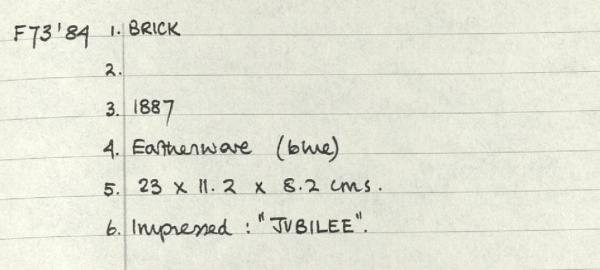 F73'84 1. BRICK
2.
3. 1887
4. Eathenware (blue)
5. 23 x 11.2 x 8.2 cms.
6. Impressed : "JVBILEE".